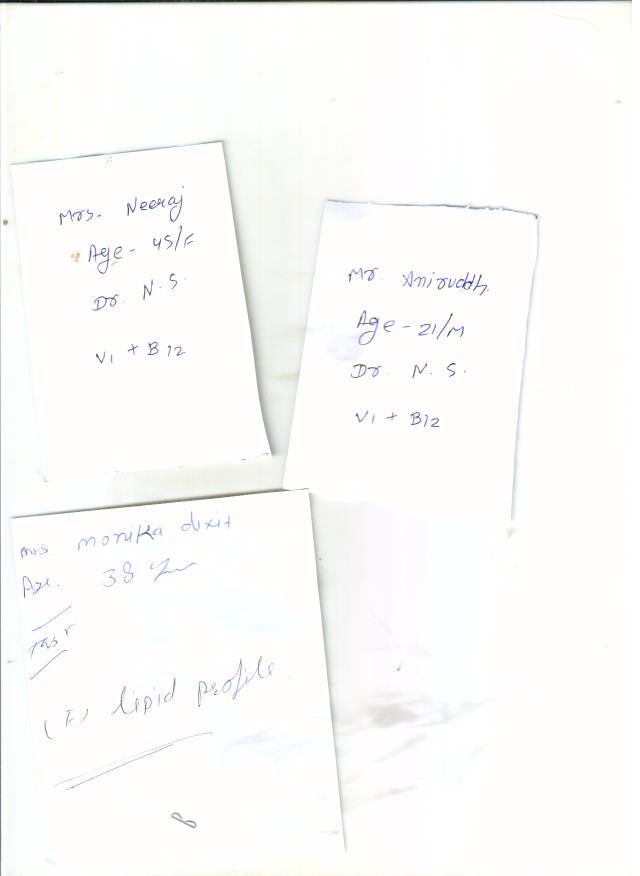 Mrs. Neeraj
Age - 45/F
Dr. N.S.
V1 + B12
Mr. Aniruddh
Age - 21/M
Dr. N.S.
V1 + B12
Mrs monika dixit
Age. 38
(F) lipid profile
8